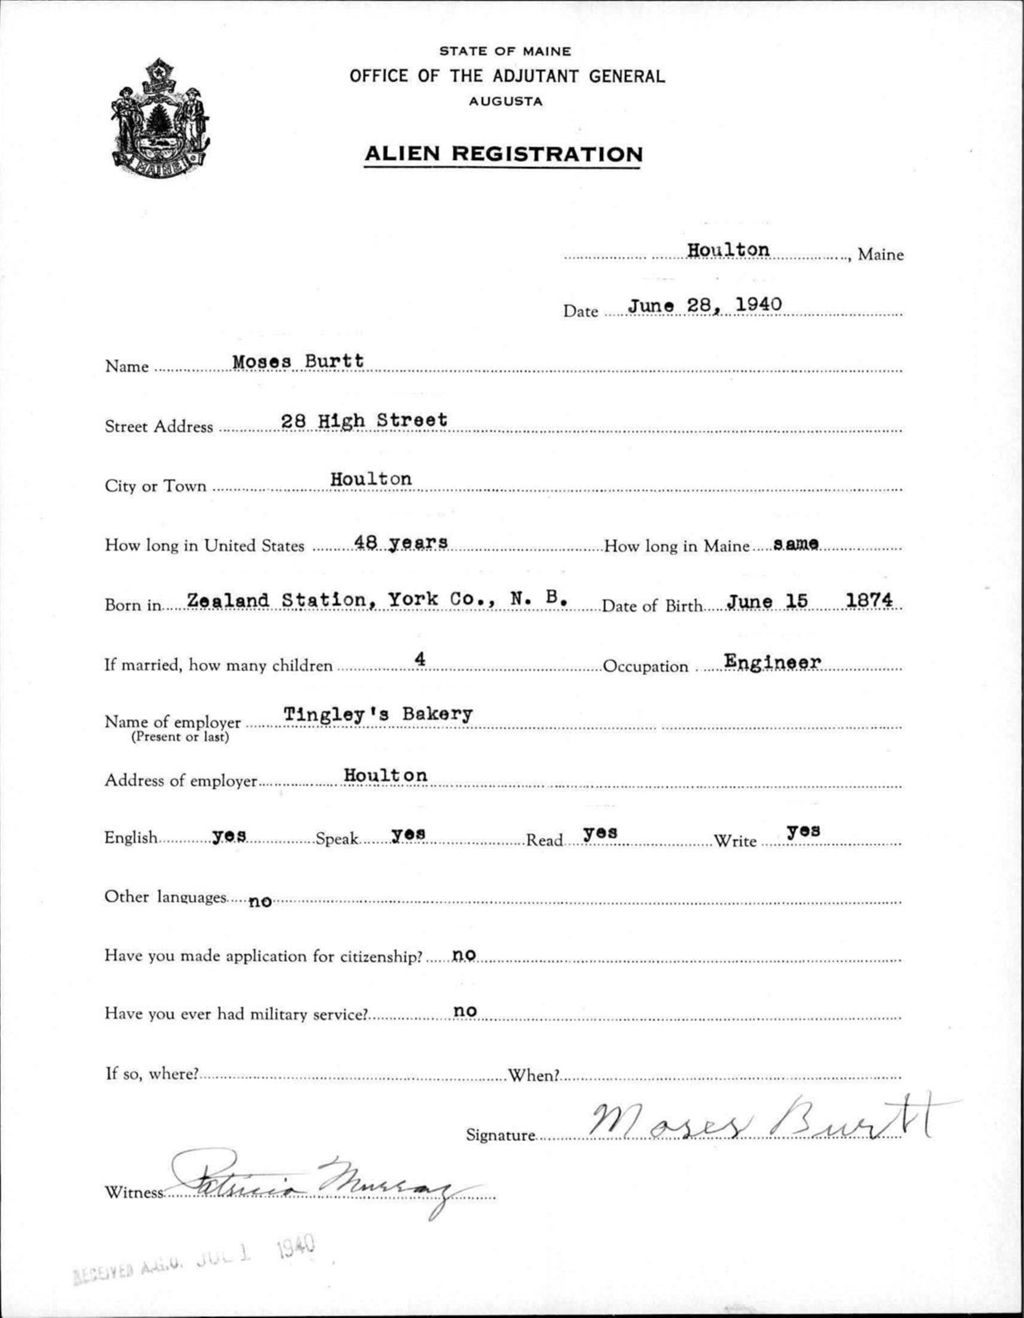 STATE OF MAINE
OFFICE OF THE ADJUTANT GENERAL
AUGUSTA
ALIEN REGISTRATION
MAINE
Houlton, Maine
Date June 28, 1940
Name Moses Burtt
Street Address 28 High Street
City or Town Houlton
How long in United States 48 years How long in Maine same
Born in Zealand Station, York Co., N. B. Date of Birth June 15 1874
If married, how many children 4 Occupation Engineer
Name of employer Tingley's Bakery
(Present or last)
Address of employer Houlton
English yes Speak yes Read yes Write yes
Other languages no
Have you made application for citizenship? no
Have you ever had military service? no
If so, where? When?
Signature Moses Burtt
Witness Patricia Murray
RECEIVED A.G.O. JUL 1 1940